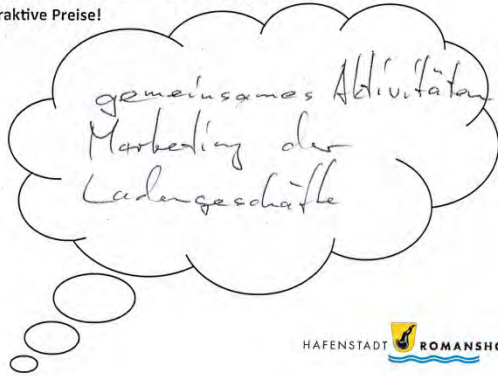 raktive Preise!
gemeinsames Aktivitäten
Marketing der
Ladengeschäfte
HAFENSTADT ROMANSHO